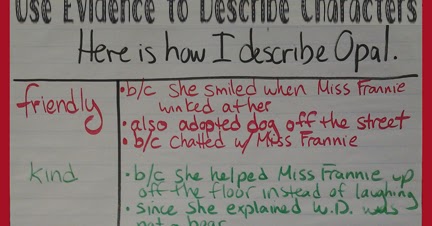 Use Evidence to Describe Characters
Here is how I describe Opal.
friendly
• b/c She smiled when Miss Frannie
winked at her
• also adopted dog off the street
• b/c chatted w/ Miss Frannie
kind
• b/c She helped Miss Frannie up
off the floor instead of laughing
• Since She explained W.D. was
not a bear